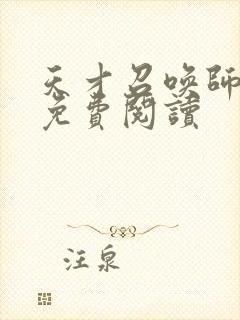 天才召唤師
免費閱讀
汪泉